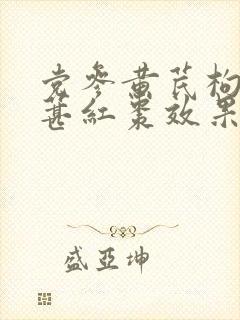 党参黄芪枸
葚红枣效果
盛亚坤